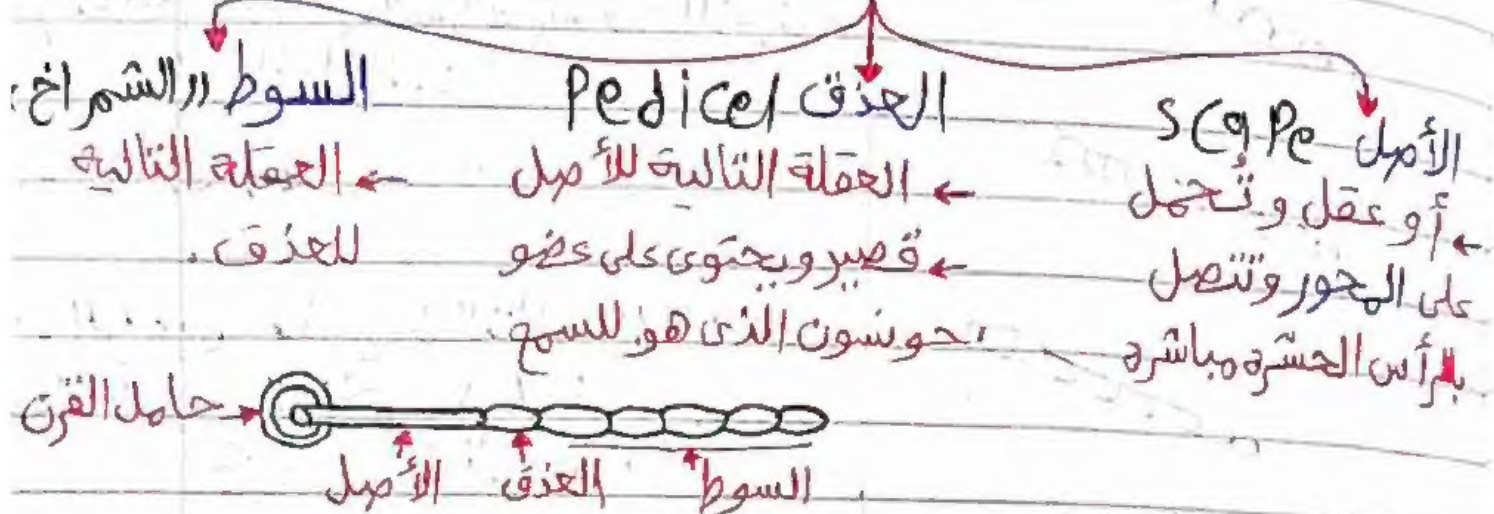 الأصل Scape
← أو عقل وتُحمل
على المحور وتتصل
بالرأس الحشره مباشره
العذق Pedicel
← العقلة التالية للأصل
← قصير ويحتوى على عضو
جونسون الذى هو للسمع.
السوط "الشمراخ"
← العقلة التالية
للعذق.
حامل القرن
الأصل
العذق
السوط